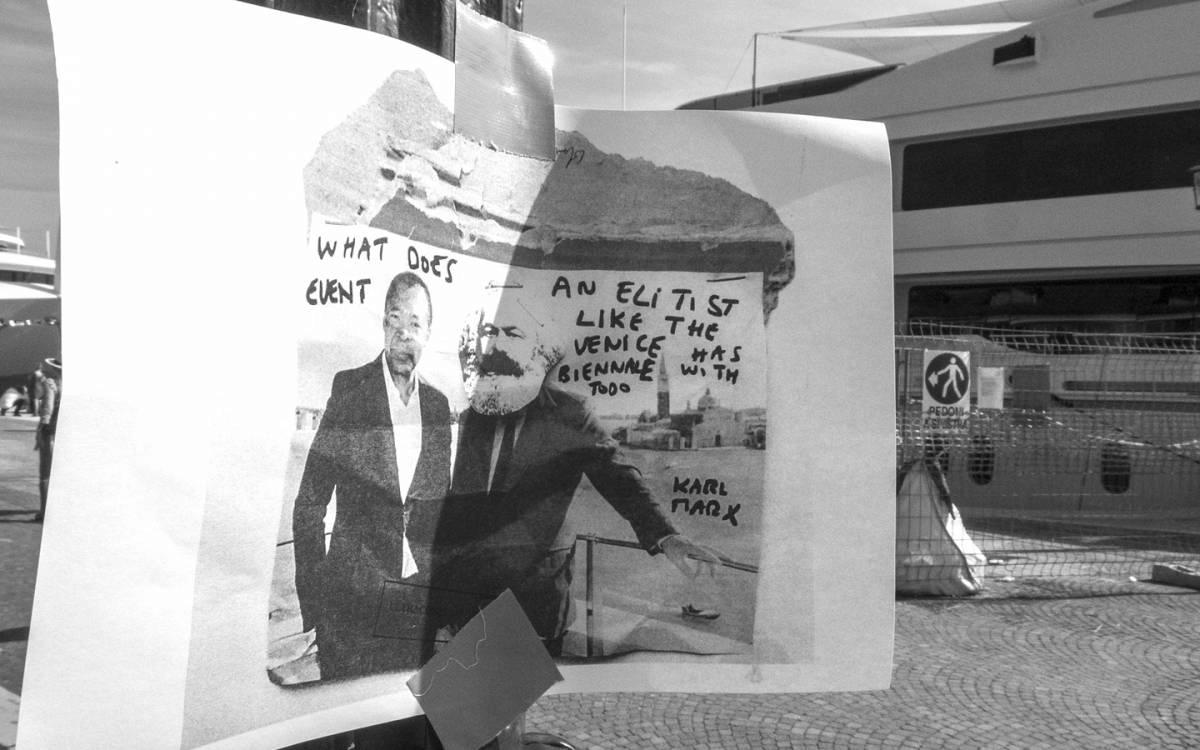 WHAT DOES
EVENT
AN ELITIST
LIKE THE
VENICE HAS
BIENNALE WITH
TODO
KARL
MARX
PEDONI
A SINISTRA